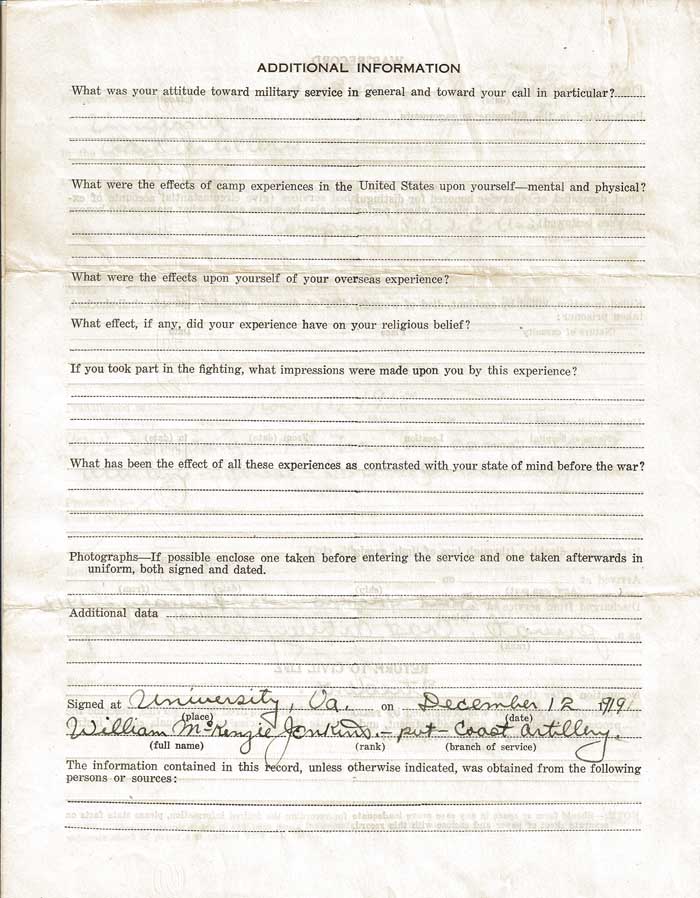 ADDITIONAL INFORMATION
What was your attitude toward military service in general and toward your call in particular?
What were the effects of camp experiences in the United States upon yourself—mental and physical?
What were the effects upon yourself of your overseas experience?
What effect, if any, did your experience have on your religious belief?
If you took part in the fighting, what impressions were made upon you by this experience?
What has been the effect of all these experiences as contrasted with your state of mind before the war?
Photographs—If possible enclose one taken before entering the service and one taken afterwards in
uniform, both signed and dated.
Additional data
Signed at University, Va. on December 12 1919
(place) (date)
William McKenzie Jenkins.—pvt—Coast Artillery.
(full name) (rank) (branch of service)
The information contained in this record, unless otherwise indicated, was obtained from the following
persons or sources: